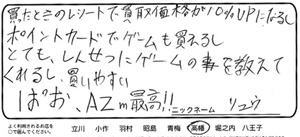 買ったときのレシートで買取価格が10%UPになるし
ポイントカードでゲームも買えるし
とても、しんせつにゲームの事を教えて
くれるし、買いやすい
いばお、AZm最高!!
ニックネーム リュウ
よく利用されるお店を○で囲んでください。 立川 小作 羽村 昭島 青梅 高幡 堀之内 八王子